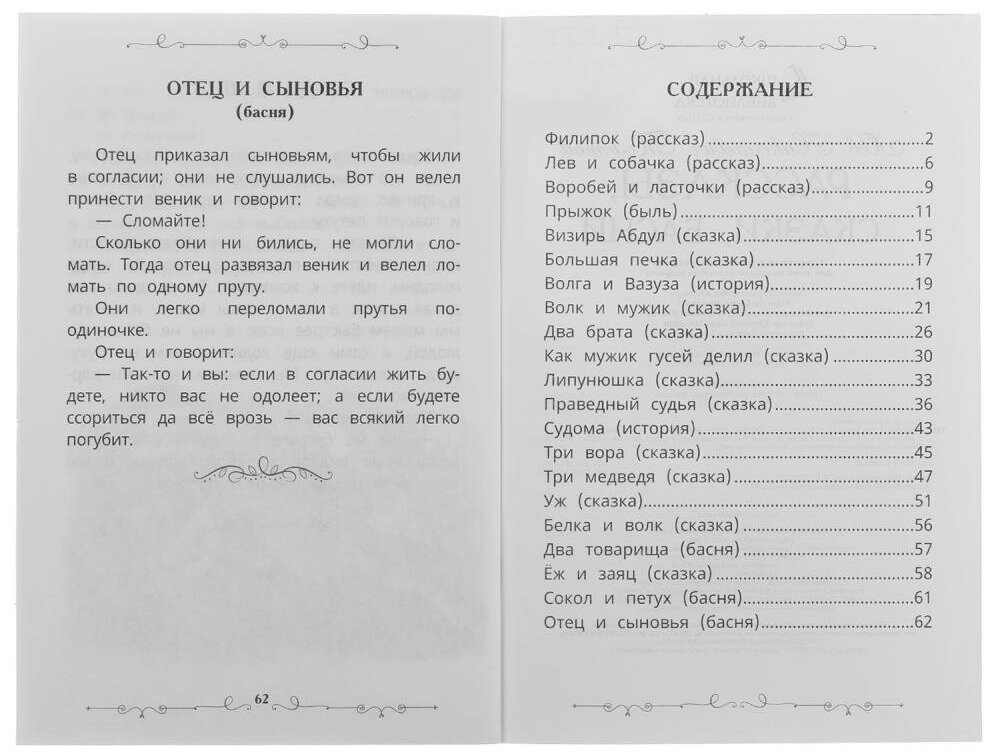 ОТЕЦ И СЫНОВЬЯ
(басня)
Отец приказал сыновьям, чтобы жили
в согласии; они не слушались. Вот он велел
принести веник и говорит:
— Сломайте!
Сколько они ни бились, не могли сло-
мать. Тогда отец развязал веник и велел ло-
мать по одному пруту.
Они легко переломали прутья по-
одиночке.
Отец и говорит:
— Так-то и вы: если в согласии жить бу-
дете, никто вас не одолеет; а если будете
ссориться да всё врозь — вас всякий легко
погубит.
62
СОДЕРЖАНИЕ
Филипок (рассказ)....................2
Лев и собачка (рассказ)....................6
Воробей и ласточки (рассказ)....................9
Прыжок (быль)....................11
Визирь Абдул (сказка)....................15
Большая печка (сказка)....................17
Волга и Вазуза (история)....................19
Волк и мужик (сказка)....................21
Два брата (сказка)....................26
Как мужик гусей делил (сказка)....................30
Липунюшка (сказка)....................33
Праведный судья (сказка)....................36
Судома (история)....................43
Три вора (сказка)....................45
Три медведя (сказка)....................47
Уж (сказка)....................51
Белка и волк (сказка)....................56
Два товарища (басня)....................57
Ёж и заяц (сказка)....................58
Сокол и петух (басня)....................61
Отец и сыновья (басня)....................62